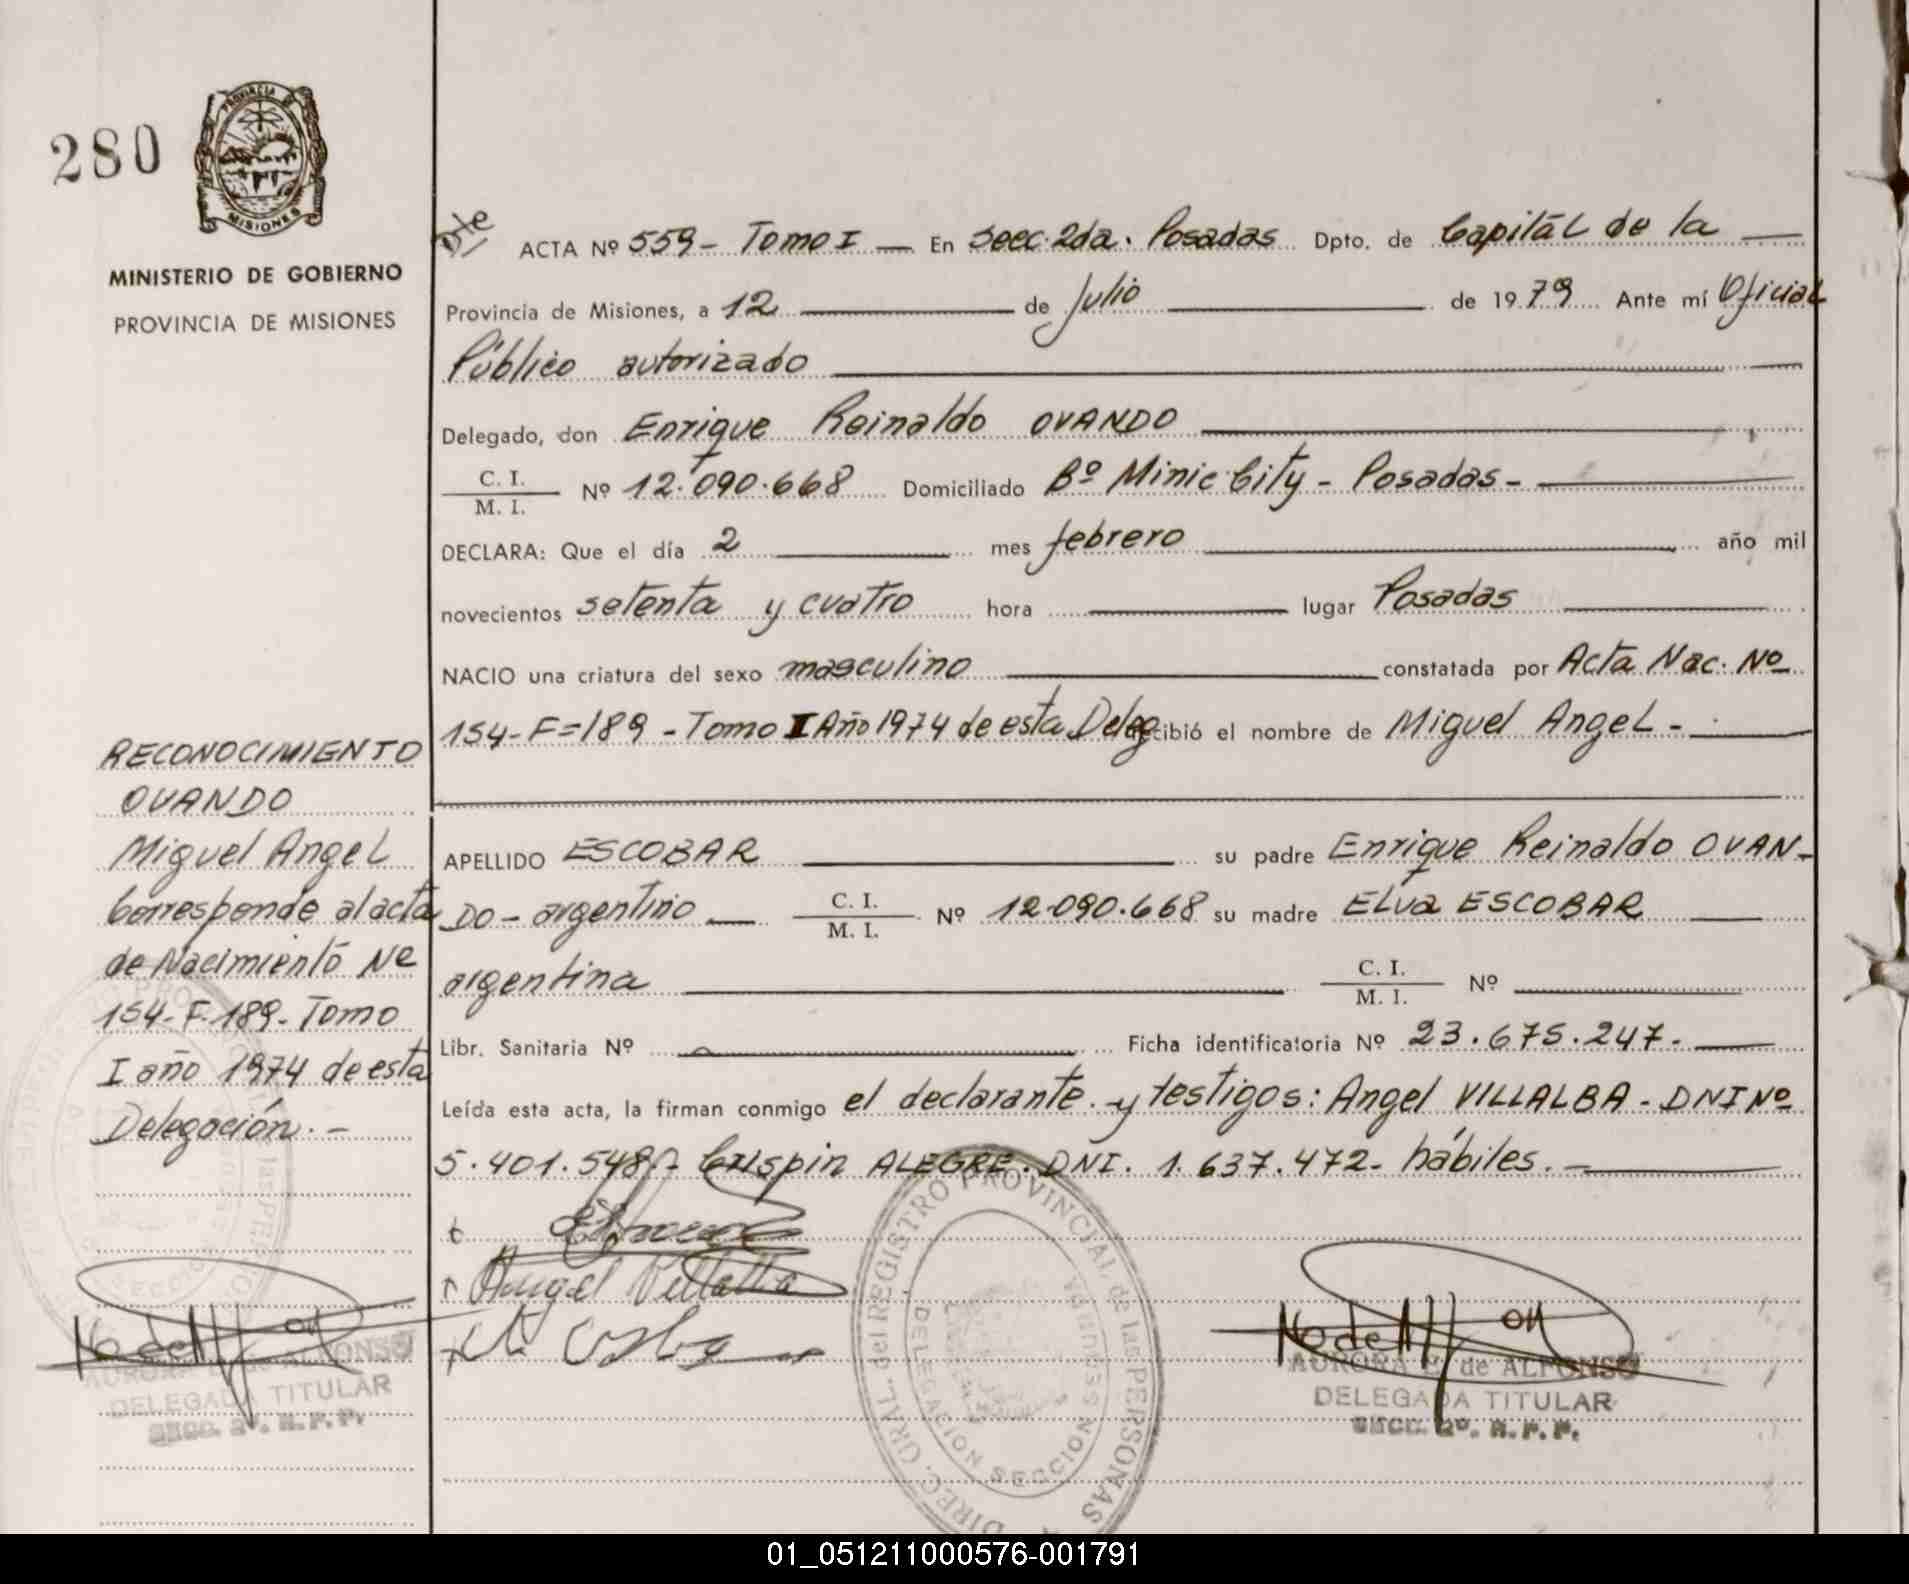 280
PROVINCIA DE
MISIONES
MINISTERIO DE GOBIERNO
PROVINCIA DE MISIONES
Dte
ACTA Nº 559- Tomo I — En Secc. 2da. Posadas Dpto. de Capitál de la —
Provincia de Misiones, a 12 — de Julio — de 1979 Ante mí Oficial
Público autorizado —
Delegado, don Enrique Reinaldo OVANDO —
C. I.
M. I. Nº 12.090.668 Domiciliado Bº Minic City - Posadas - —
DECLARA: Que el día 2 — mes febrero — año mil
novecientos setenta y cuatro hora — lugar Posadas —
NACIO una criatura del sexo masculino — constatada por Acta Nac. Nº
154-F=189 - Tomo I Año 1974 de esta Deleg cibió el nombre de Miguel Angel - —
APELLIDO ESCOBAR — su padre Enrique Reinaldo OVAN-
DO - argentino — C. I.
M. I. Nº 12.090.668 su madre Elva ESCOBAR —
argentina — C. I.
M. I. Nº —
Libr. Sanitaria Nº — Ficha identificatoria Nº 23.675.247. —
Leída esta acta, la firman conmigo el declarante y testigos: Angel VILLALBA - DNI Nº
5.401.548.- Crispin ALEGRE. DNI. 1.637.472- hábiles. —
RECONOCIMIENTO
OVANDO
Miguel Angel
Corresponde al acta
de Nacimiento Nº
154-F.189-Tomo
I año 1974 de esta
Delegación. -
Angel Villalba
DIREC. GRAL. del REGISTRO PROVINCIAL de las PERSONAS
DELEGACION SECCION SEGUNDA
AURORA E. de ALFONSO
DELEGADA TITULAR
SECC. 2º. R. P. P.
AURORA E. de ALFONSO
DELEGADA TITULAR
SECC. 2º. R. P. P.
01_051211000576-001791